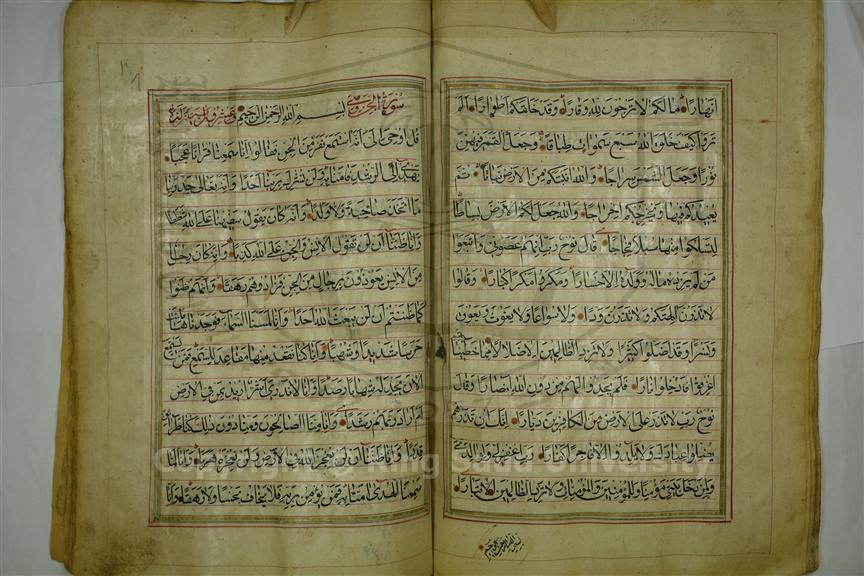 انهارا ما لكم لا ترجون لله وقارا وقد خلقكم اطوارا الم
تروا كيف خلق الله سبع سموات طباقا وجعل القمر فيهن
نورا وجعل الشمس سراجا والله انبتكم من الارض نباتا ثم
يعيدكم فيها ويخرجكم اخراجا والله جعل لكم الارض بساطا
لتسلكوا منها سبلا فجاجا قال نوح رب انهم عصوني واتبعوا
من لم يزده ماله وولده الا خسارا ومكروا مكرا كبارا وقالوا
لا تذرن الهتكم ولا تذرن ودا ولا سواعا ولا يغوث ويعوق
ونسرا وقد اضلوا كثيرا ولا تزد الظالمين الا ضلالا مما خطيئاتهم
اغرقوا فادخلوا نارا فلم يجدوا لهم من دون الله انصارا وقال
نوح رب لا تذر على الارض من الكافرين ديارا انك ان تذرهم
يضلوا عبادك ولا يلدوا الا فاجرا كفارا رب اغفر لي ولوالدي
ولمن دخل بيتي مؤمنا وللمؤمنين والمؤمنات ولا تزد الظالمين الا تبارا
سورة الجن بسم الله الرحمن الرحيم
قل اوحي الي انه استمع نفر من الجن فقالوا انا سمعنا قرانا عجبا
يهدي الى الرشد فامنا به ولن نشرك بربنا احدا وانه تعالى جد ربنا
ما اتخذ صاحبة ولا ولدا وانه كان يقول سفيهنا على الله شططا
وانا ظننا ان لن تقول الانس والجن على الله كذبا وانه كان رجال
من الانس يعوذون برجال من الجن فزادوهم رهقا وانهم ظنوا
كما ظننتم ان لن يبعث الله احدا وانا لمسنا السماء فوجدناها ملئت
حرسا شديدا وشهبا وانا كنا نقعد منها مقاعد للسمع فمن يستمع
الان يجد له شهابا رصدا وانا لا ندري اشر اريد بمن في الارض
ام اراد بهم ربهم رشدا وانا منا الصالحون ومنا دون ذلك كنا طرائق
قددا وانا ظننا ان لن نعجز الله في الارض ولن نعجزه هربا وانا لما
سمعنا الهدى امنا به فمن يؤمن بربه فلا يخاف بخسا ولا رهقا وانا